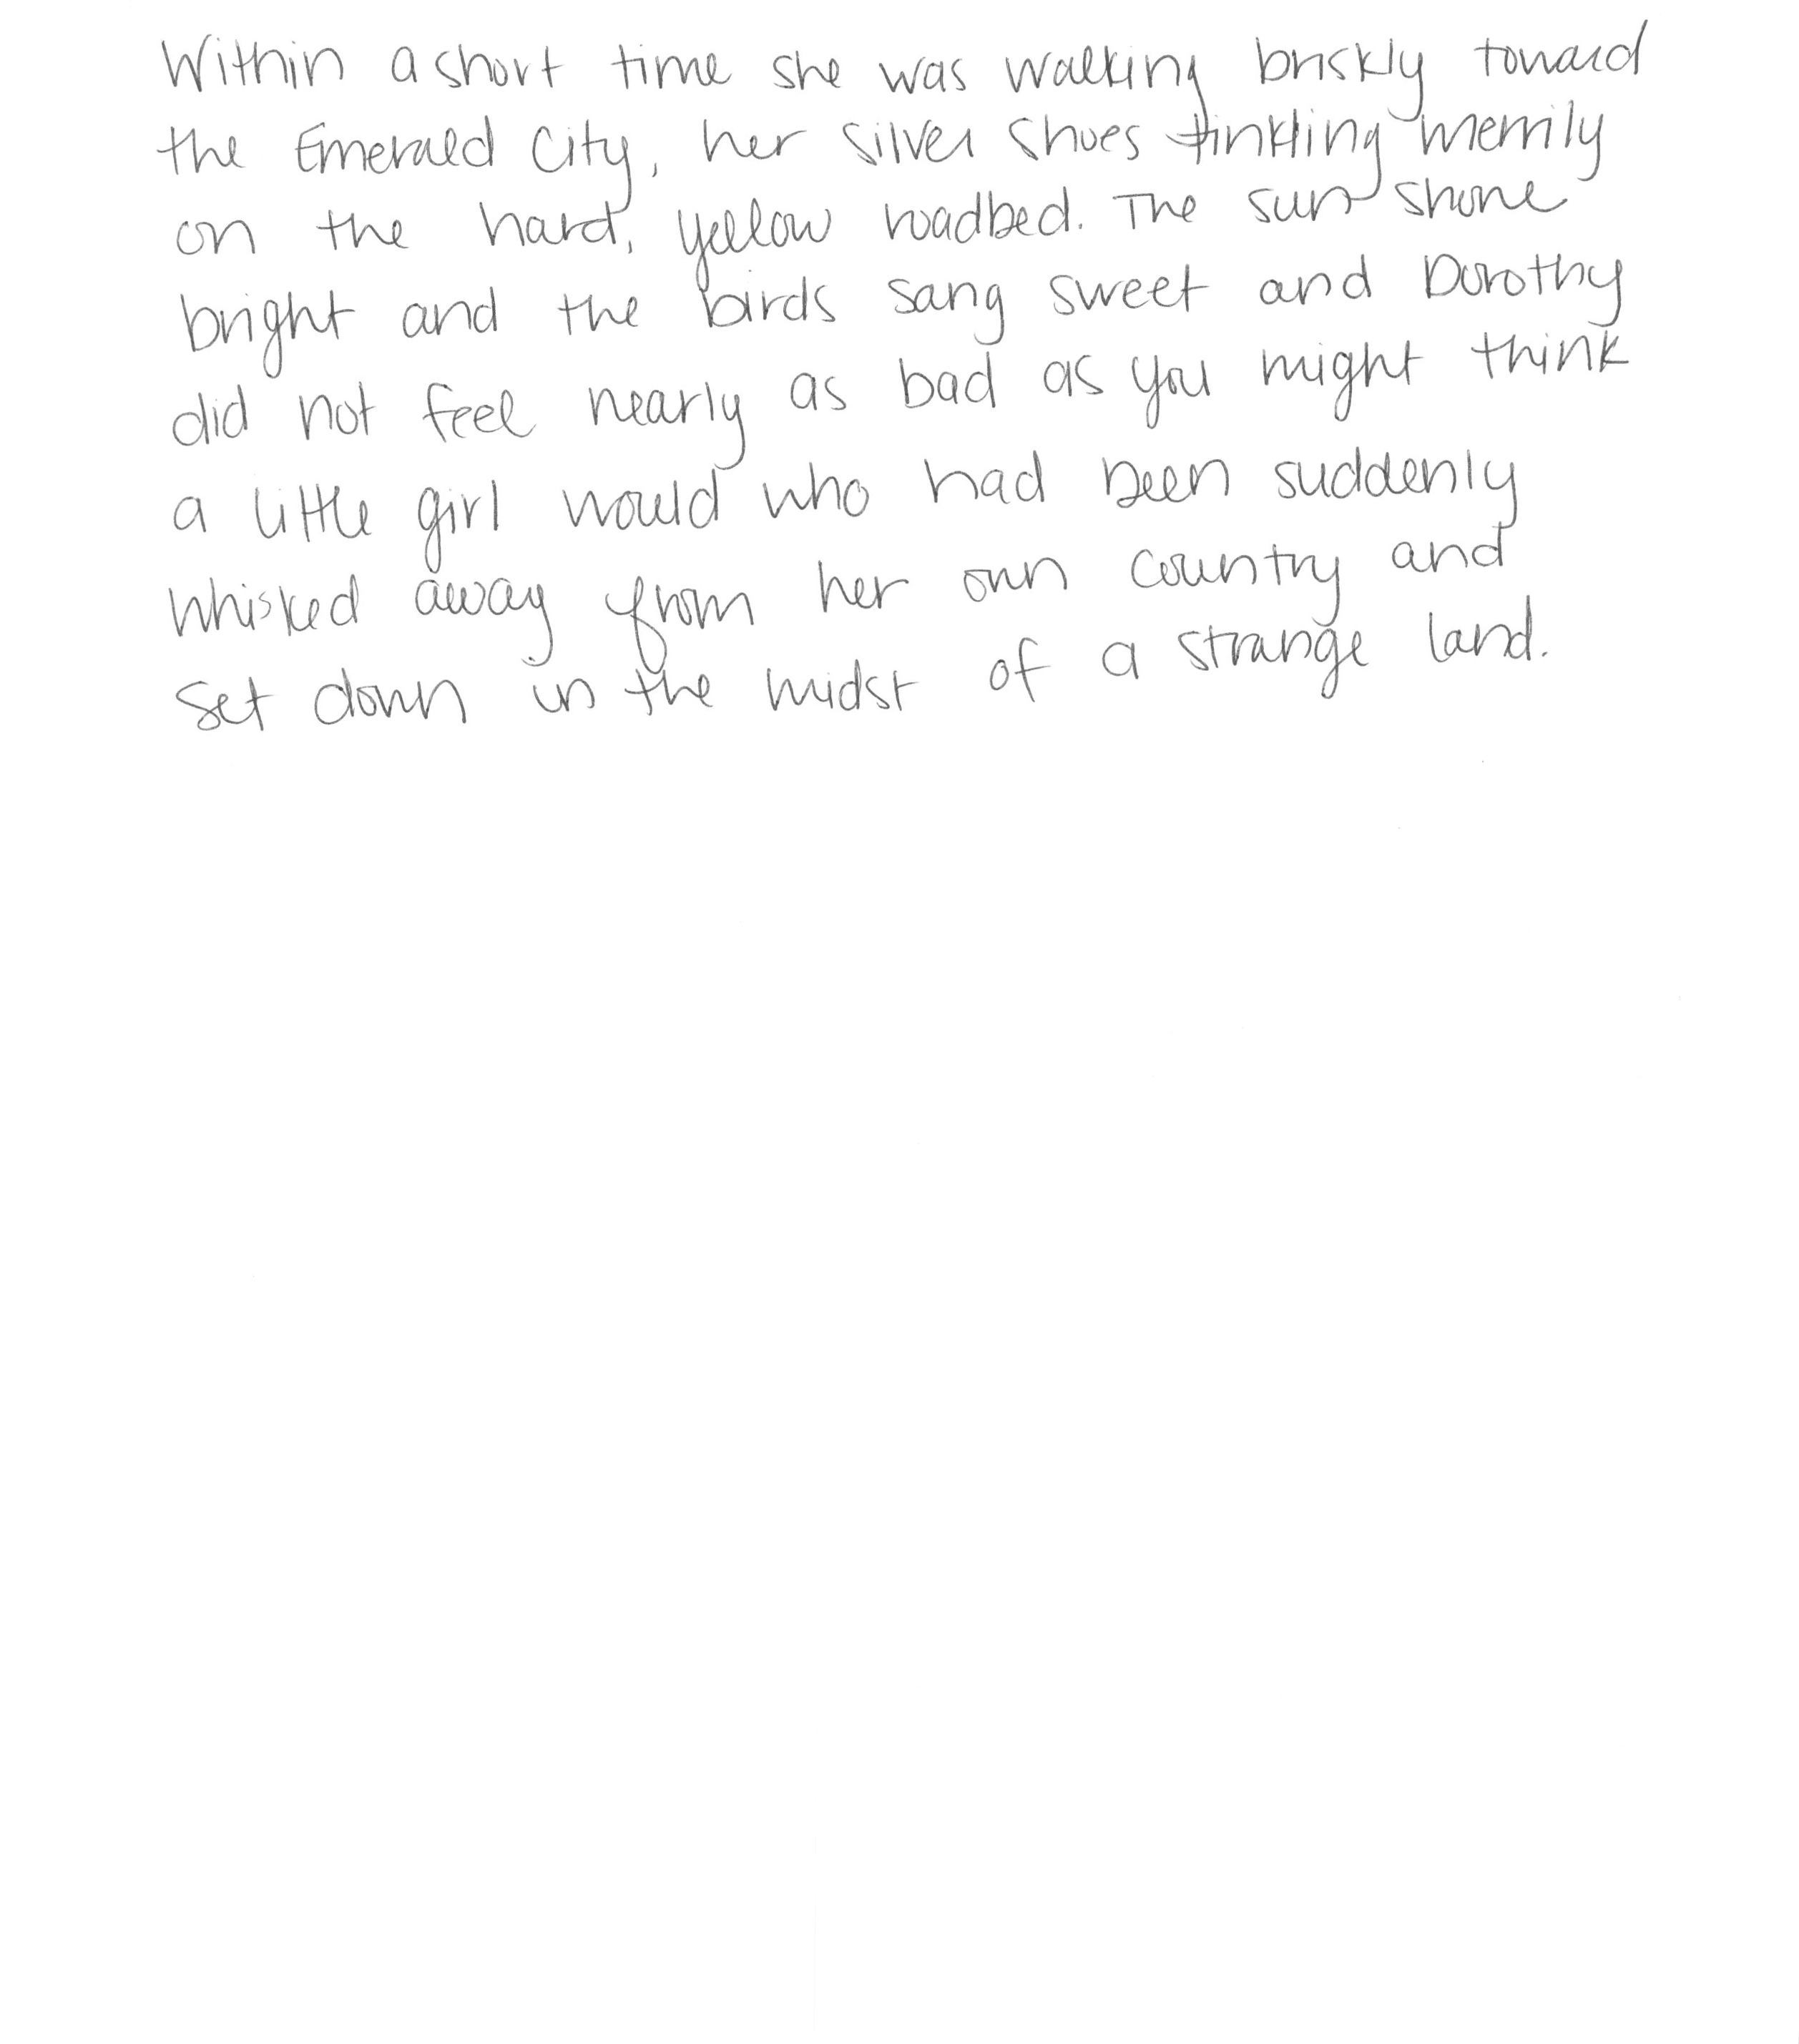 Within a short time she was walking briskly toward
the Emerald City, her silver shoes tinkling merrily
on the hard, yellow roadbed. The sun shone
bright and the birds sang sweet and Dorothy
did not feel nearly as bad as you might think
a little girl would who had been suddenly
whisked away from her own country and
set down in the midst of a strange land.